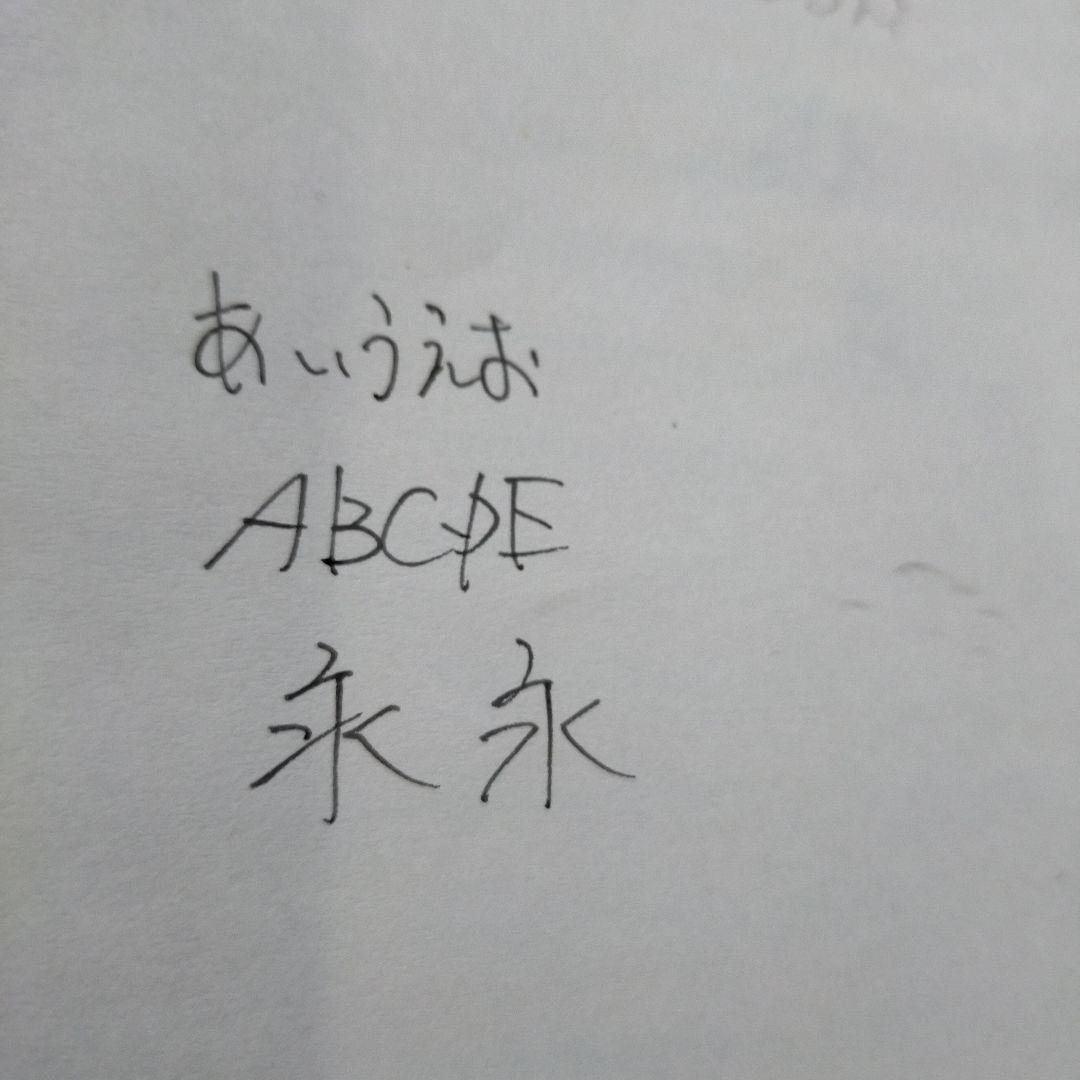 あいうえお
ABCDE
永永